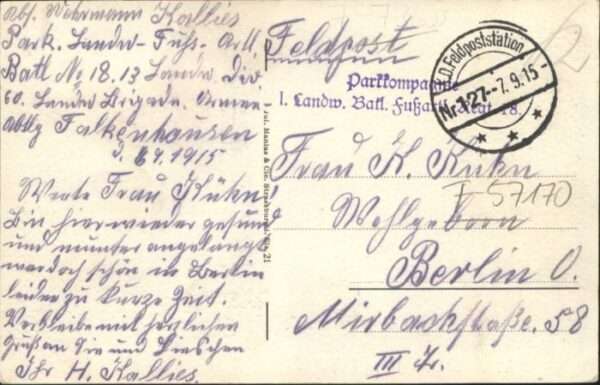 Abs. Wehrmann Kallies
Park. Landw-Fuhs. Artl
Batl No 18. 13 Landw. Div
60. Landw Brigade. Armee
Abtlg Falkenhausen
d. 6/9.1915
Werte Frau Kühn
Bin hier wieder gesund
und munter angelangt
war doch schön in Berlin
leider zu kurze Zeit.
Verbleibe mit herzlichen
Gruß an Sie und Lieschen
Ihr H. Kallies.
Feldpost
Parkkompagnie
1. Landw. Batl. Fußart. Regt. 18.
K.D. Feldpoststation
Nr. 127 - 7.9.15 -
Frau K. Kuhn
F-57170
Wohlgeborn
Berlin O.
Mirbachstraße. 58
III Tr.
12